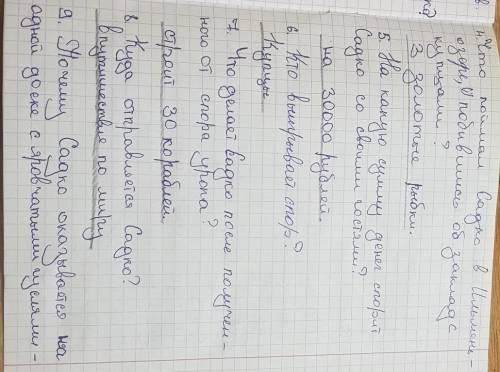 4. Что поймал Садко в Ильмень-
озере, побившись об заклад с
купцами?
3 золотые рыбки.
5 На какую сумму денег спорит
Садко со своими гостями?
на 30000 рублей.
6. Кто выигрывает спор?
Купцы
7. Что делает Садко после получен-
ного от спора урока?
строит 30 кораблей
8. Куда отправляется Садко?
в путишествие по миру
9. Почему Садко оказывается на
одной доске с яровчатыми гуслями-